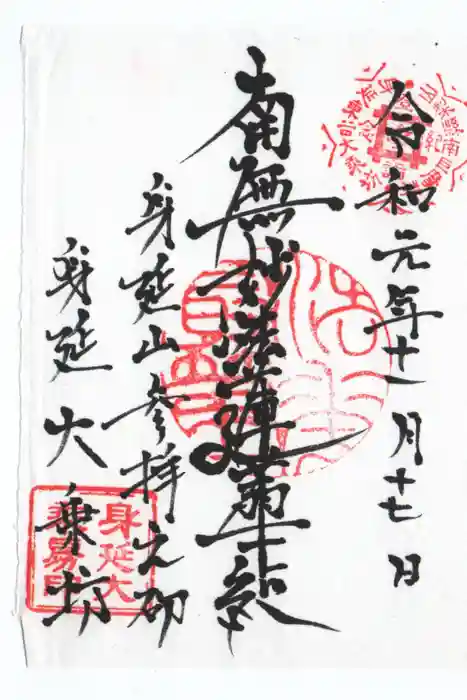 令和元年十一月十七日
南無妙法蓮華経
身延山参拝之砌
身延 大乗坊
身延大